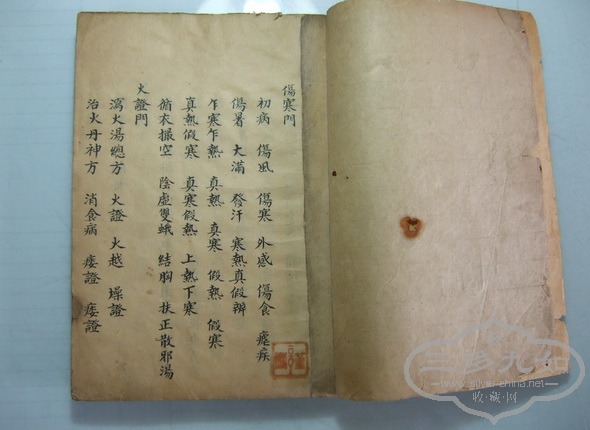 傷寒門
初病 傷風 傷寒 外感 傷食 瘧疾
傷暑 大滿 發汗 寒熱真假辨
乍寒乍熱 真熱 真寒 假熱 假寒
真熱假寒 真寒假熱 上熱下寒
循衣撮空 陰虛雙蛾 結胸 扶正散邪湯
火證門
瀉火湯總方 火證 火越 燥證
治火丹神方 消食病 痿證 痿證
www.silver-china.net
收藏网